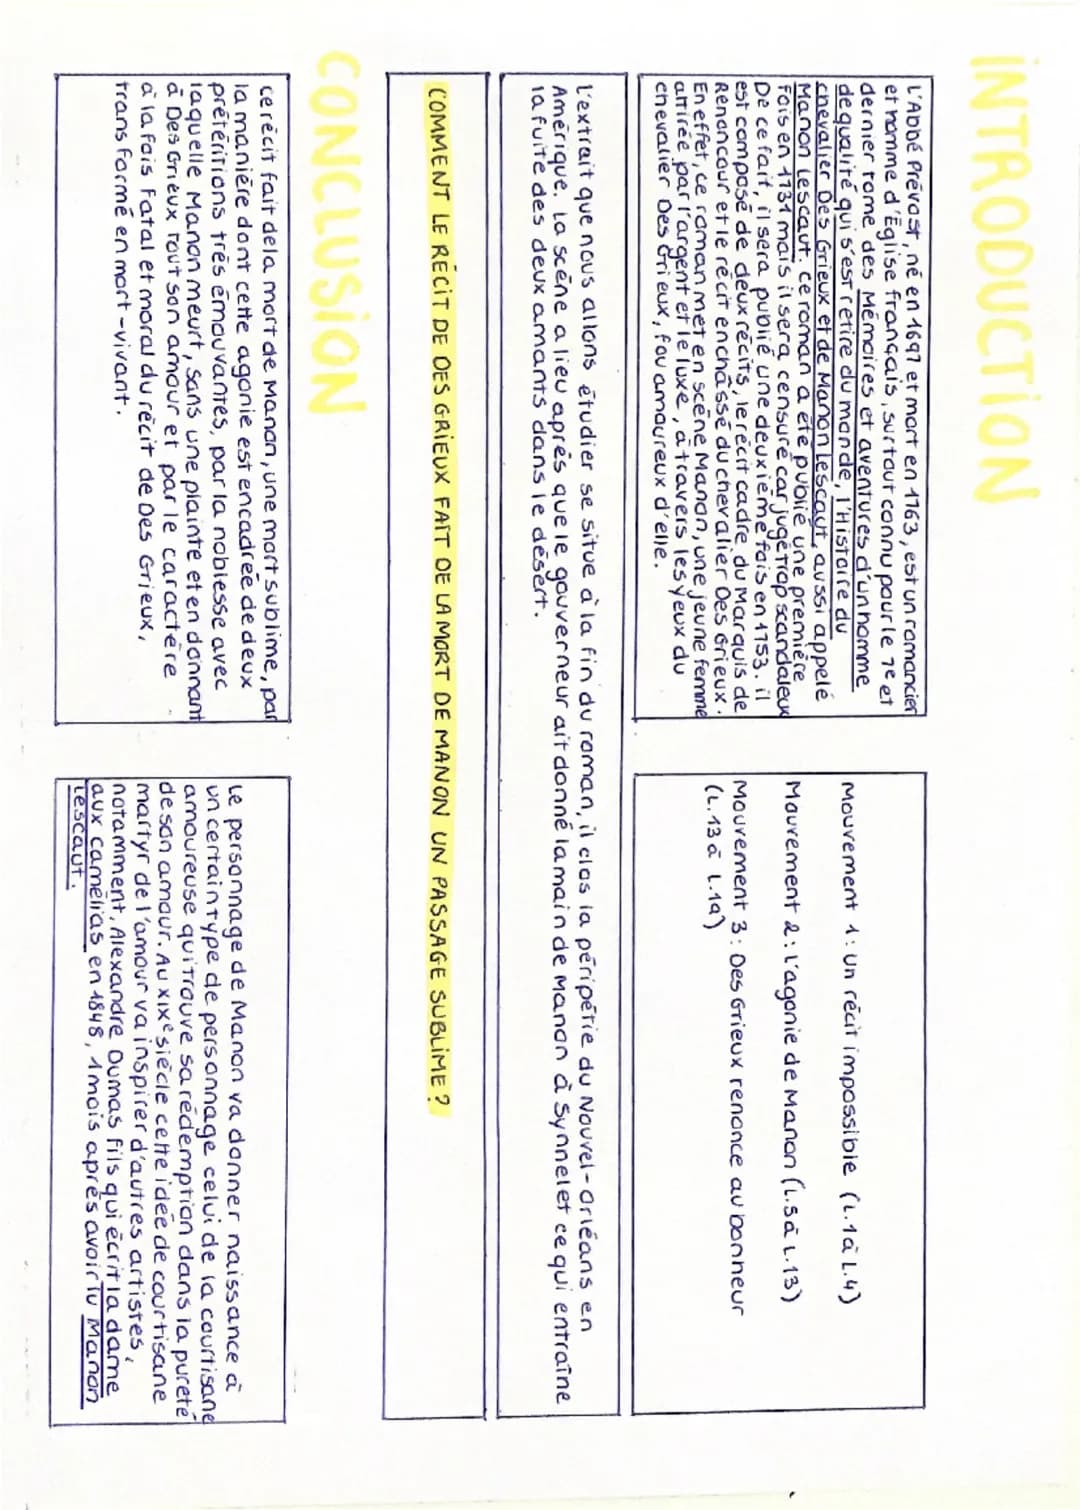 INTRODUCTION
L'Abbé Prévost, né en 1697 et mort en 1763, est un romancier
et homme d'Église français, surtout connu pour le 7e et
dernier tome des Mémoires et aventures d'un homme
de qualité qui s'est retiré du monde, l'Histoire du
chevalier Des Grieux et de Manon Lescaut, aussi appelé
Manon Lescaut. Ce roman a été publié une première
fois en 1731 mais il sera censuré car jugé trop scandaleux
De ce fait, il sera publié une deuxième fois en 1753. il
est composé de deux récits, le récit cadre du Marquis de
Renoncour et le récit enchâssé du chevalier Des Grieux.
En effet, ce roman met en scène Manon, une jeune femme
attiré par l'argent et le luxe, à travers les yeux du
chevalier Des Grieux, fou amoureux d'elle.
Mouvement 1 : Un récit impossible (L.1 à L.4)
Mouvement 2 : l'agonie de Manon (L.5 à L.13)
Mouvement 3 : Des Grieux renonce au bonheur
(L.13 à L.19)
l'extrait que nous allons étudier se situe à la fin du roman, il clos la péripétie du Nouvel-Orléans en
Amérique. La scène a lieu après que le gouverneur ait donné la main de Manon à Synnelet ce qui entraîne
la fuite des deux amants dans le désert.
COMMENT LE RÉCIT DE DES GRIEUX FAIT DE LA MORT DE MANON UN PASSAGE SUBLIME ?
CONCLUSION
ce récit fait de la mort de Manon, une mort sublime, par
la manière dont cette agonie est encadrée de deux
prétéritions très émouvantes, par la noblesse avec
laquelle Manon meurt, sans une plainte et en donnant
à Des Grieux tout son amour et par le caractère
à la fois fatal et moral du récit de Des Grieux,
transformé en mort-vivant.
Le personnage de Manon va donner naissance à
un certain type de personnage celui de la courtisane
amoureuse qui trouve sa rédemption dans la pureté
de son amour. Au XIXe siècle cette idée de courtisane
martyr de l'amour va inspirer d'autres artistes,
notamment, Alexandre Dumas fils qui écrit la dame
aux camélias en 1848, 1 mois après avoir lu Manon
Lescaut.